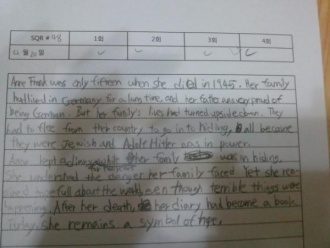 SQR # 98 1회 2회 3회 4회
월 일
Anne Frank was only fifteen when she died in 1945. Her family
had lived in Germany for a long time, and her father was very proud of
being German. But her family's lives had turned upside down. They
had to flee from their country to go into hiding, all because
they were Jewish and Adolf Hitler was in power.
Anne kept a diary while her family was in hiding.
She understood the danger her family faced. Yet she
hopefull about the world even though terrible things were
happening. After her death, her diary had become a book
today. She remains a symbol of hope.